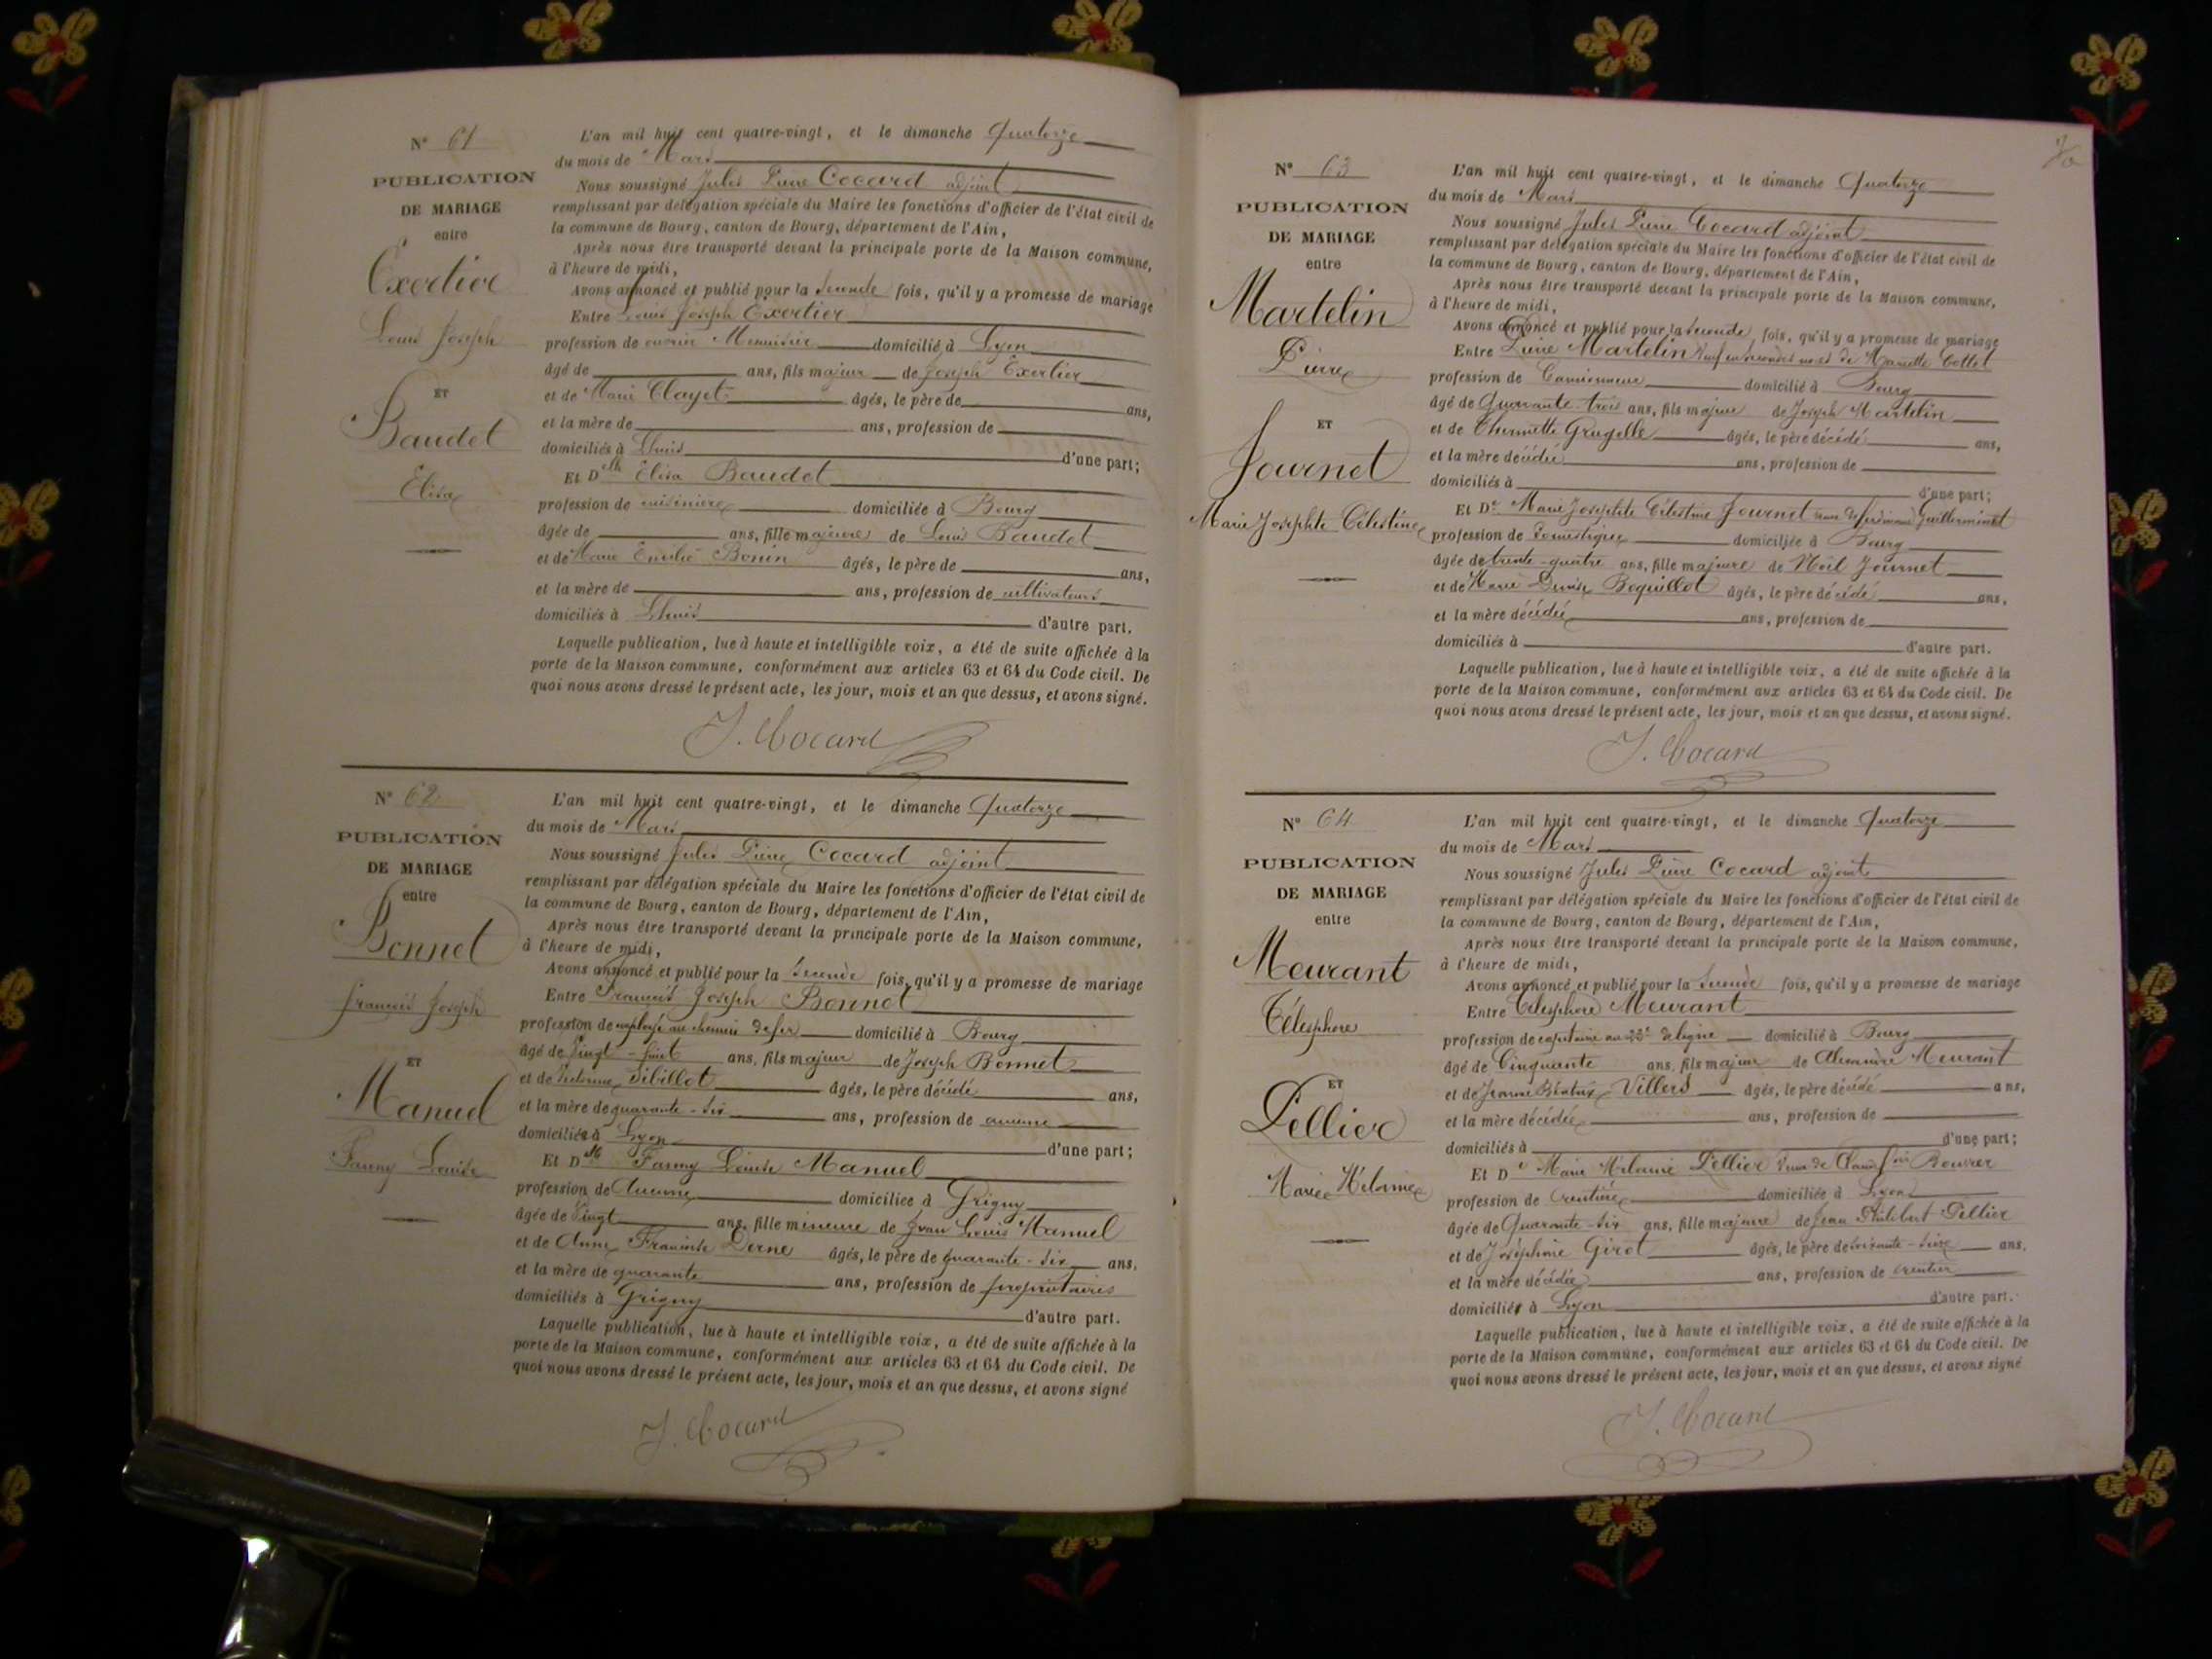 N° 61
PUBLICATION
DE MARIAGE
entre
Exertier
Louis Joseph
ET
Baudet
Elisa
L'an mil huit cent quatre-vingt, et le dimanche Quatorze
du mois de Mars
Nous soussigné Jules Pierre Cocard adjoint
remplissant par délégation spéciale du Maire les fonctions d'officier de l'état civil de
la commune de Bourg, canton de Bourg, département de l'Ain,
Après nous être transporté devant la principale porte de la Maison commune,
à l'heure de midi,
Avons annoncé et publié pour la Seconde fois, qu'il y a promesse de mariage
Entre Louis Joseph Exertier
profession de ouvrier Menuisier domicilié à Lyon
âgé de ans, fils majeur de Joseph Exertier
et de Marie Clayet âgés, le père de ans,
et la mère de ans, profession de
domiciliés à Lhuis d'une part;
Et Delle Elisa Baudet
profession de cuisinière domiciliée à Bourg
âgée de ans, fille majeure de Louis Baudet
et de Marie Emilie Bonin âgés, le père de ans,
et la mère de ans, profession de cultivateurs
domiciliés à Lhuis d'autre part.
Laquelle publication, lue à haute et intelligible voix, a été de suite affichée à la
porte de la Maison commune, conformément aux articles 63 et 64 du Code civil. De
quoi nous avons dressé le présent acte, les jour, mois et an que dessus, et avons signé.
J. Cocard
N° 62
PUBLICATION
DE MARIAGE
entre
Bonnet
François Joseph
ET
Manuel
Fanny Louise
L'an mil huit cent quatre-vingt, et le dimanche Quatorze
du mois de Mars
Nous soussigné Jules Pierre Cocard adjoint
remplissant par délégation spéciale du Maire les fonctions d'officier de l'état civil de
la commune de Bourg, canton de Bourg, département de l'Ain,
Après nous être transporté devant la principale porte de la Maison commune,
à l'heure de midi,
Avons annoncé et publié pour la Seconde fois, qu'il y a promesse de mariage
Entre François Joseph Bonnet
profession de employé au chemin de fer domicilié à Bourg
âgé de Vingt-huit ans, fils majeur de Joseph Bonnet
et de Victorine Sibillot âgés, le père décédé ans,
et la mère de quarante-six ans, profession de aucune
domiciliés à Lyon d'une part;
Et Dlle Fanny Louise Manuel
profession de Aucune domiciliée à Grigny
âgée de Vingt ans, fille mineure de Jean Louis Manuel
et de Anne Françoise Derne âgés, le père de quarante-six ans,
et la mère de quarante ans, profession de propriétaires
domiciliés à Grigny d'autre part.
Laquelle publication, lue à haute et intelligible voix, a été de suite affichée à la
porte de la Maison commune, conformément aux articles 63 et 64 du Code civil. De
quoi nous avons dressé le présent acte, les jour, mois et an que dessus, et avons signé
J. Cocard
N° 63
PUBLICATION
DE MARIAGE
entre
Martelin
Pierre
ET
Journet
Marie Josephte Célestine
L'an mil huit cent quatre-vingt, et le dimanche Quatorze
du mois de Mars
Nous soussigné Jules Pierre Cocard adjoint
remplissant par délégation spéciale du Maire les fonctions d'officier de l'état civil de
la commune de Bourg, canton de Bourg, département de l'Ain,
Après nous être transporté devant la principale porte de la Maison commune,
à l'heure de midi,
Avons annoncé et publié pour la Seconde fois, qu'il y a promesse de mariage
Entre Pierre Martelin Veuf en secondes noces de Mariette Cottet
profession de Camionneur domicilié à Bourg
âgé de Quarante-trois ans, fils majeur de Joseph Martelin
et de Thermette Grugelle âgés, le père décédé ans,
et la mère décédée ans, profession de
domiciliés à d'une part;
Et De Marie Josephte Célestine Journet veuve de Ferdinand Guillerminet
profession de Domestique domiciliée à Bourg
âgée de trente-quatre ans, fille majeure de Noël Journet
et de Marie Denise Boquillot âgés, le père décédé ans,
et la mère décédée ans, profession de
domiciliés à d'autre part.
Laquelle publication, lue à haute et intelligible voix, a été de suite affichée à la
porte de la Maison commune, conformément aux articles 63 et 64 du Code civil. De
quoi nous avons dressé le présent acte, les jour, mois et an que dessus, et avons signé.
J. Cocard
N° 64
PUBLICATION
DE MARIAGE
entre
Meurant
Télesphore
ET
Pellier
Marie Mélanie
L'an mil huit cent quatre-vingt, et le dimanche Quatorze
du mois de Mars
Nous soussigné Jules Pierre Cocard adjoint
remplissant par délégation spéciale du Maire les fonctions d'officier de l'état civil de
la commune de Bourg, canton de Bourg, département de l'Ain,
Après nous être transporté devant la principale porte de la Maison commune,
à l'heure de midi,
Avons annoncé et publié pour la Seconde fois, qu'il y a promesse de mariage
Entre Télesphore Meurant
profession de capitaine au de ligne domicilié à Bourg
âgé de Cinquante ans, fils majeur de Alexandre Meurant
et de Jeanne Béatrix Villers âgés, le père décédé ans,
et la mère décédée ans, profession de
domiciliés à d'une part;
Et De Marie Mélanie Pellier Veuve de Claude Bouvrer
profession de rentière domiciliée à Lyon
âgée de Quarante-six ans, fille majeure de Jean Philibert Pellier
et de Joséphine Girot âgés, le père de soixante-seize ans,
et la mère décédée ans, profession de rentier
domiciliés à Lyon d'autre part.
Laquelle publication, lue à haute et intelligible voix, a été de suite affichée à la
porte de la Maison commune, conformément aux articles 63 et 64 du Code civil. De
quoi nous avons dressé le présent acte, les jour, mois et an que dessus, et avons signé
J. Cocard